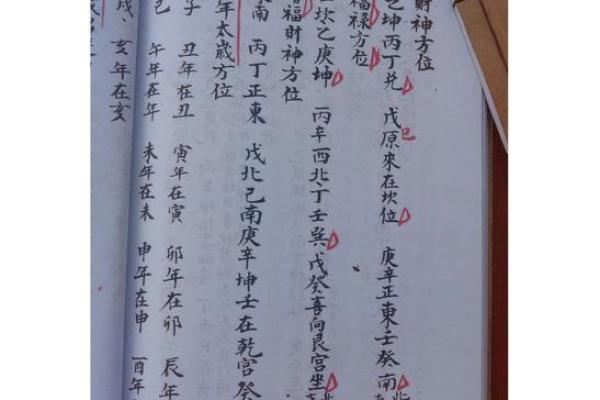 財神方位
乙坤丙丁兌 戊巳原來在坎位 庚辛正東壬癸南
福祿方位
坎乙庚坤 丙辛西北丁壬巽戊癸喜向艮宮坐
福財神方位
南 丙丁正東 戊北己南庚辛坤壬在乾宮癸
年太歲方位
子 丑年在丑 寅年在寅 卯年在卯 辰年
巳 午年在年 未年在未 申年在申 酉年
戌、亥年在亥